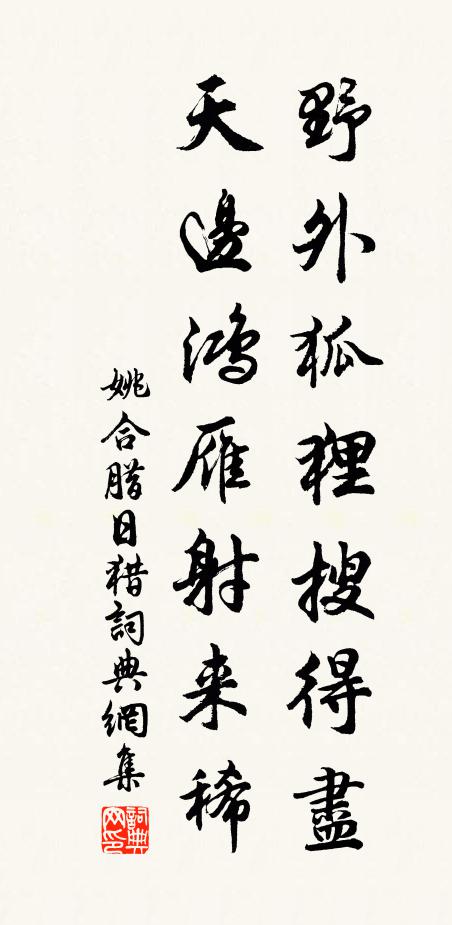 野外狐狸搜得盡
天邊鴻雁射来稀
姚合腊日猎詞典網集
詞典网印